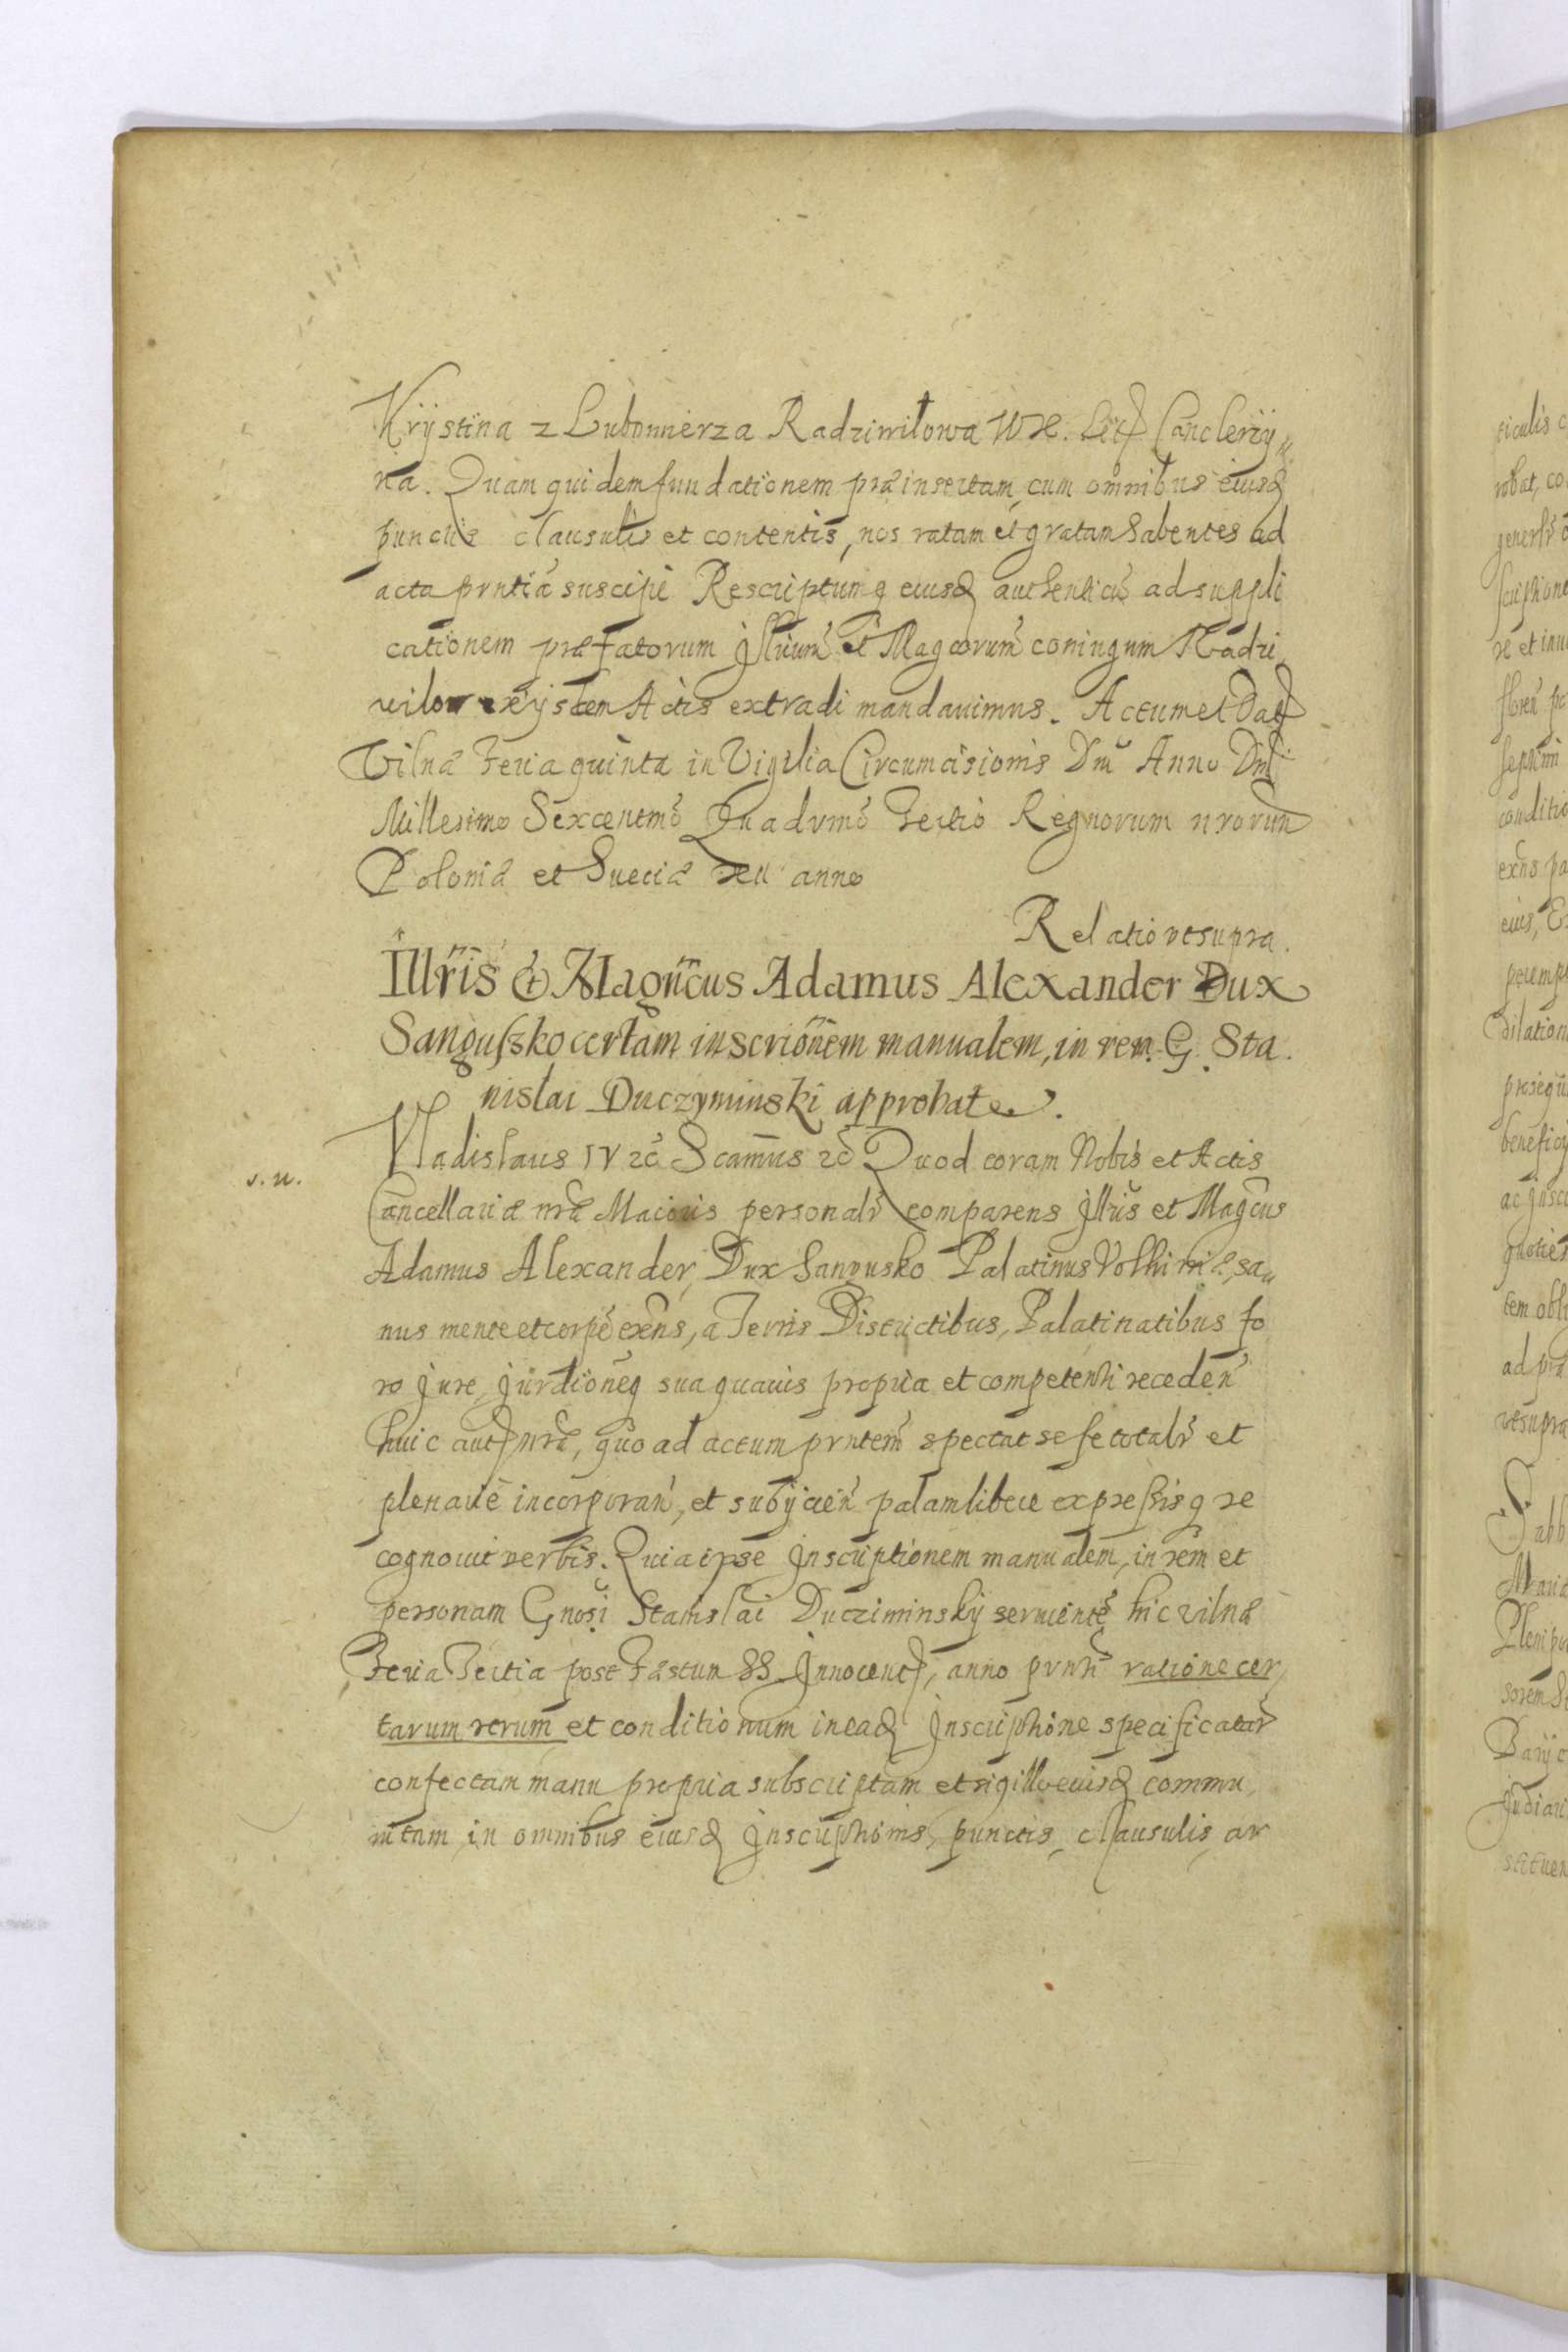 Krÿstina z Lubomierza Radziwiłowa WX. Lit Canclerzy„
na. Quam quidem fundationem præinsertam, cum omnibus eiusq
punctis clausulis et contentis, nos ratam et gratam habentes ad
acta prntia suscipi Rescriptumq eiusd authenticu ad suppli
cationem præfatorum Jllrium et Magcorum coniugum Radzi
vilow exÿsten Actis extradi mandauimus. Actum et Dat
Vilnæ Feria quinta in Vigilia Circumcisionis Dni Anno Dni
Millesimo Sexcentmo Quadrmo Tertio Regnorum nrorum
Poloniæ et Sueciæ anno
Relatio vt supra.
Illris & Magncus Adamus Alexander Dux
Sanguszko certam inscrionem manualem, in rem G. Sta
nislai Duczyminski approbat.
Vladislaus IV &c Scamus &c Quod coram Nobis et Actis
s. n.
Cancellariæ nræ Maioris personalr comparens Jllris et Magcus
Adamus Alexander, Dux Sangusko Palatinus Volhiniæ, sa„
nus mente et corpe exns, a Terris Districtibus, Palatinatibus fo
ro Jure, Jurdioneq sua quauis propria et competenti receden
huic aut nræ, quo ad actum prntem spectat sese totalr et
plenarie incorporan, et subÿcien palam libere expressisq re
cognouit verbis. Quia ipse Inscriptionem manualem, in rem et
personam Gnosi Stanislai Ducziminskÿ seruiente hic vilnæ
Feria Tertia post Festum SS Innocent, anno prnti ratione cer
tarum rerum et conditionum in ead Inscriptione specificatar
confectam manu propria subscriptam et sigillo eiusd commu
nitam, in omnibus eiusd Inscriptionis, punctis, clausulis, ar